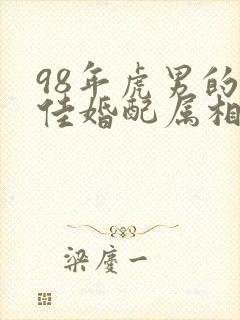 98年虎男的
佳婚配属相
梁慶一